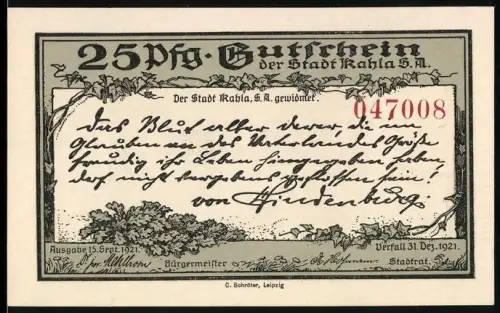 25 Pfg. Gutschein
der Stadt Kahla S.A.
Der Stadt Kahla, S.A. gewidmet.
047008
Das Blut aller derer, die im
Glauben an des Vaterlandes Größe
freudig ihr Leben hingegeben haben,
darf nicht vergebens geflossen sein!
von Hindenburg
Ausgabe 15. Sept. 1921.
Bürgermeister
Verfall 31. Dez. 1921.
Stadtrat.
C. Schröter, Leipzig